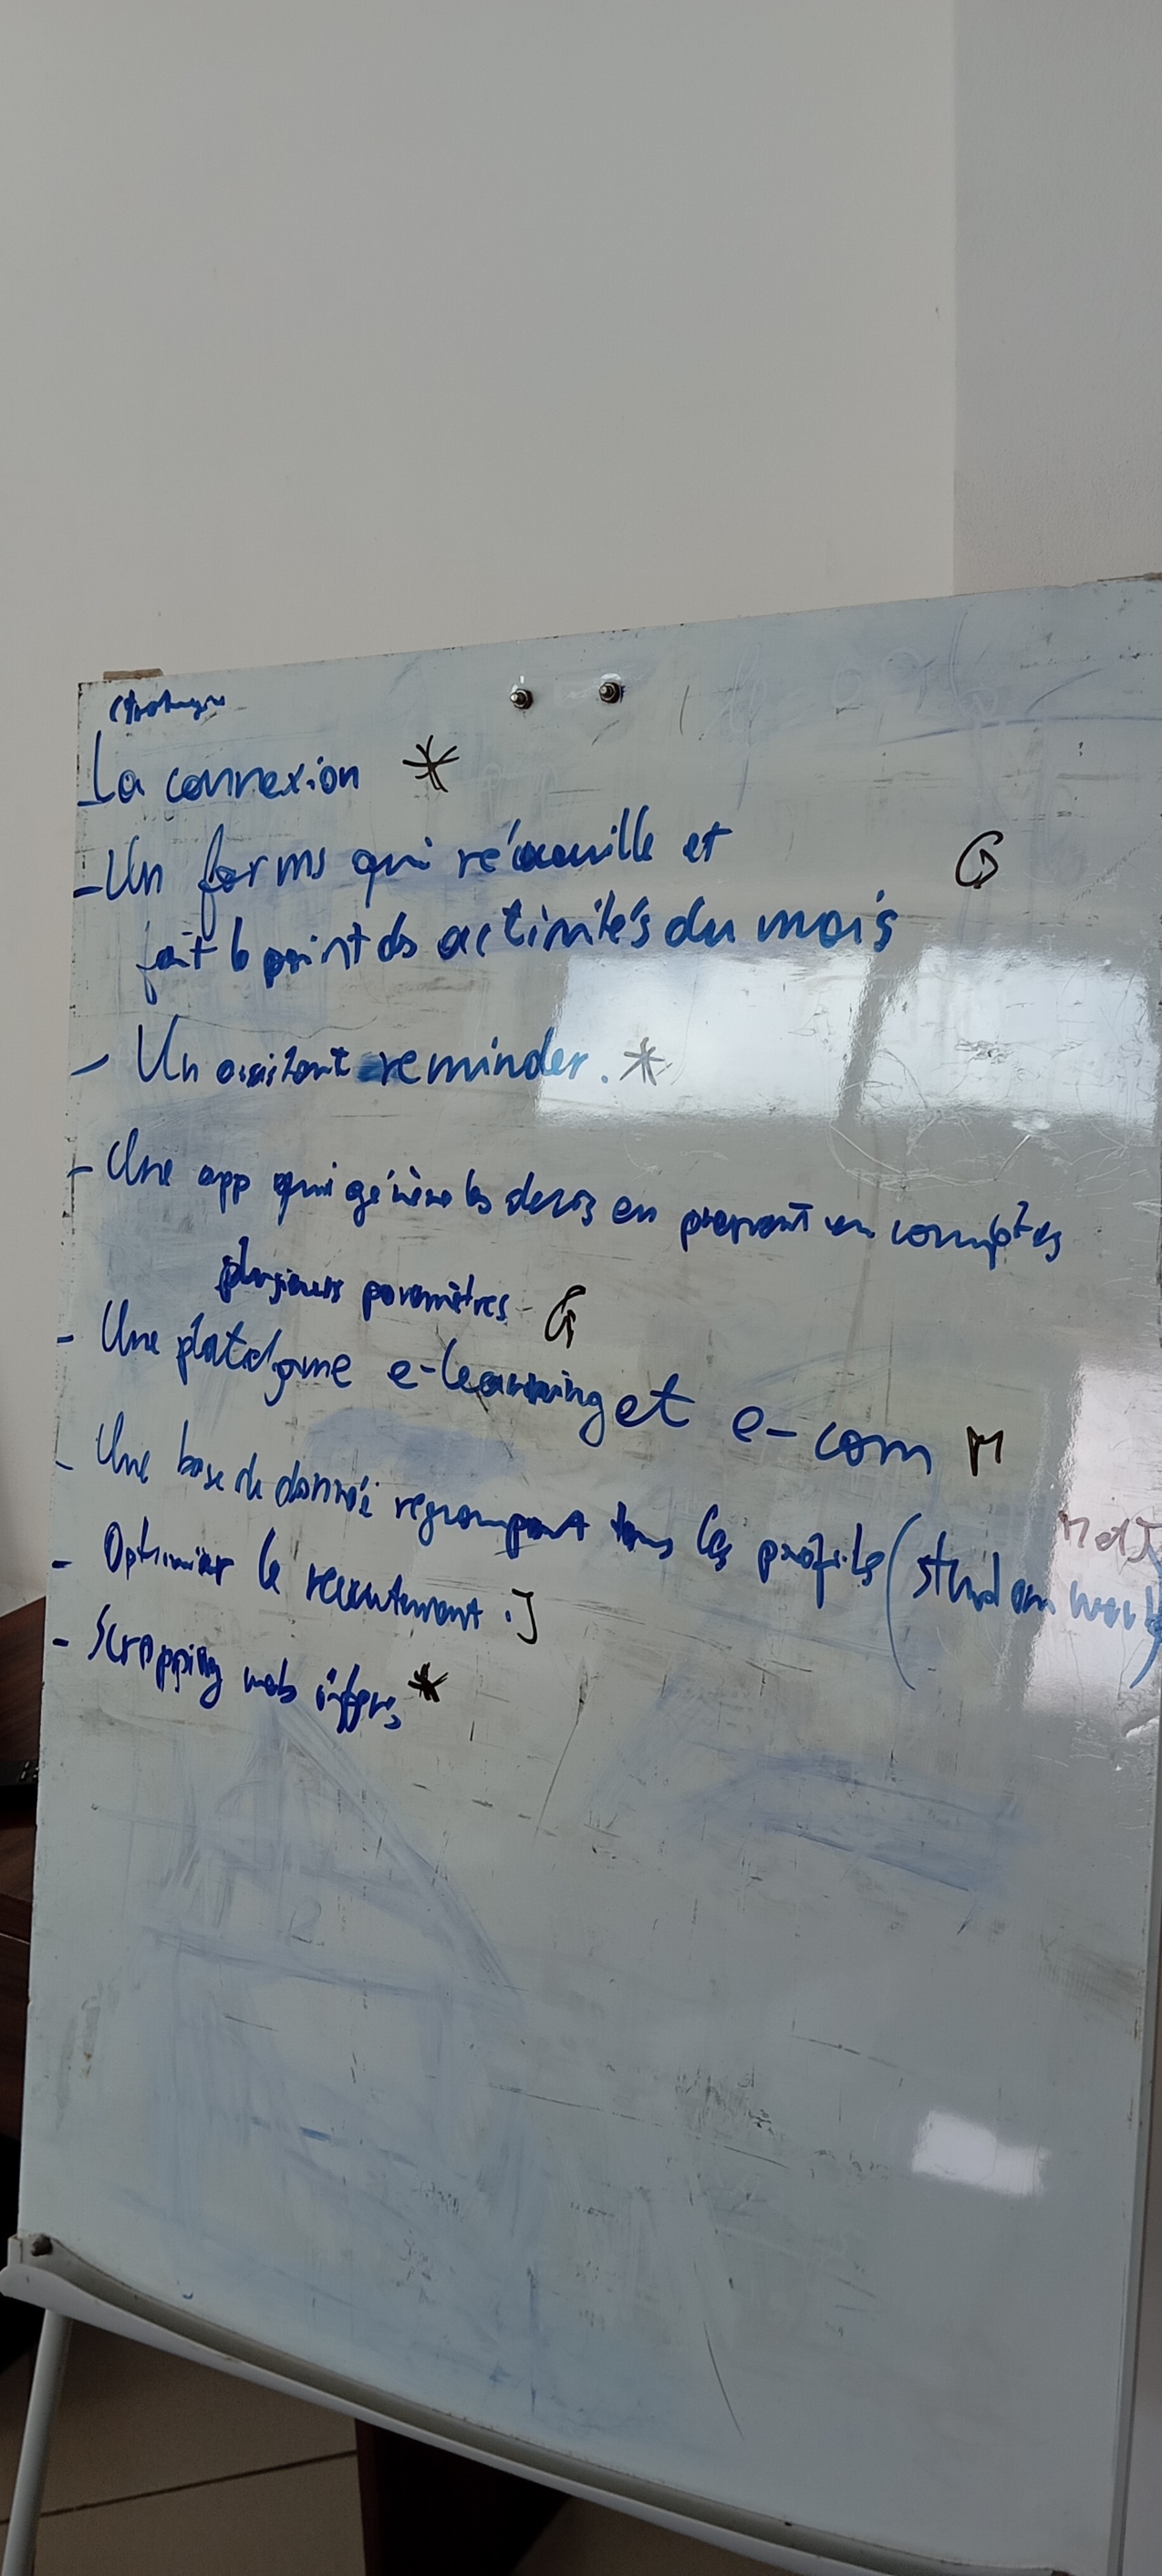 La connexion *
- Un forms qui récuille et G
fait le point des activités du mois
- Un assistant reminder. *
- Une app qui génère les devis en prenant en comptes
plusieurs paramètres G
- Une plateforme e-learning et e-com M
- Une base de donnée regroupant tous les profils (stud
M et J
- Optimiser le recrutement. J
- Scrapping web *